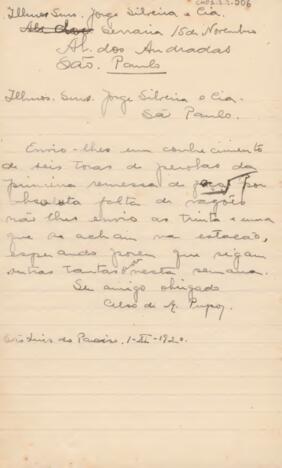 Illmos. Snrs. Jorge Silveira e Cia.
Serraria 15 de Novembro
Al. dos Andradas
São Paulo
Illmos. Snrs. Jorge Silveira e Cia.
São Paulo.
Envio-lhes um conhecimento
de seis toras de perobas da
primeira remessa de por
absoluta falta de vagões
não lhes envio as trinta e uma
que se acham na estação,
esperando porem que sigam
outras tantas nesta semana.
Seu amigo obrigado
Celso de